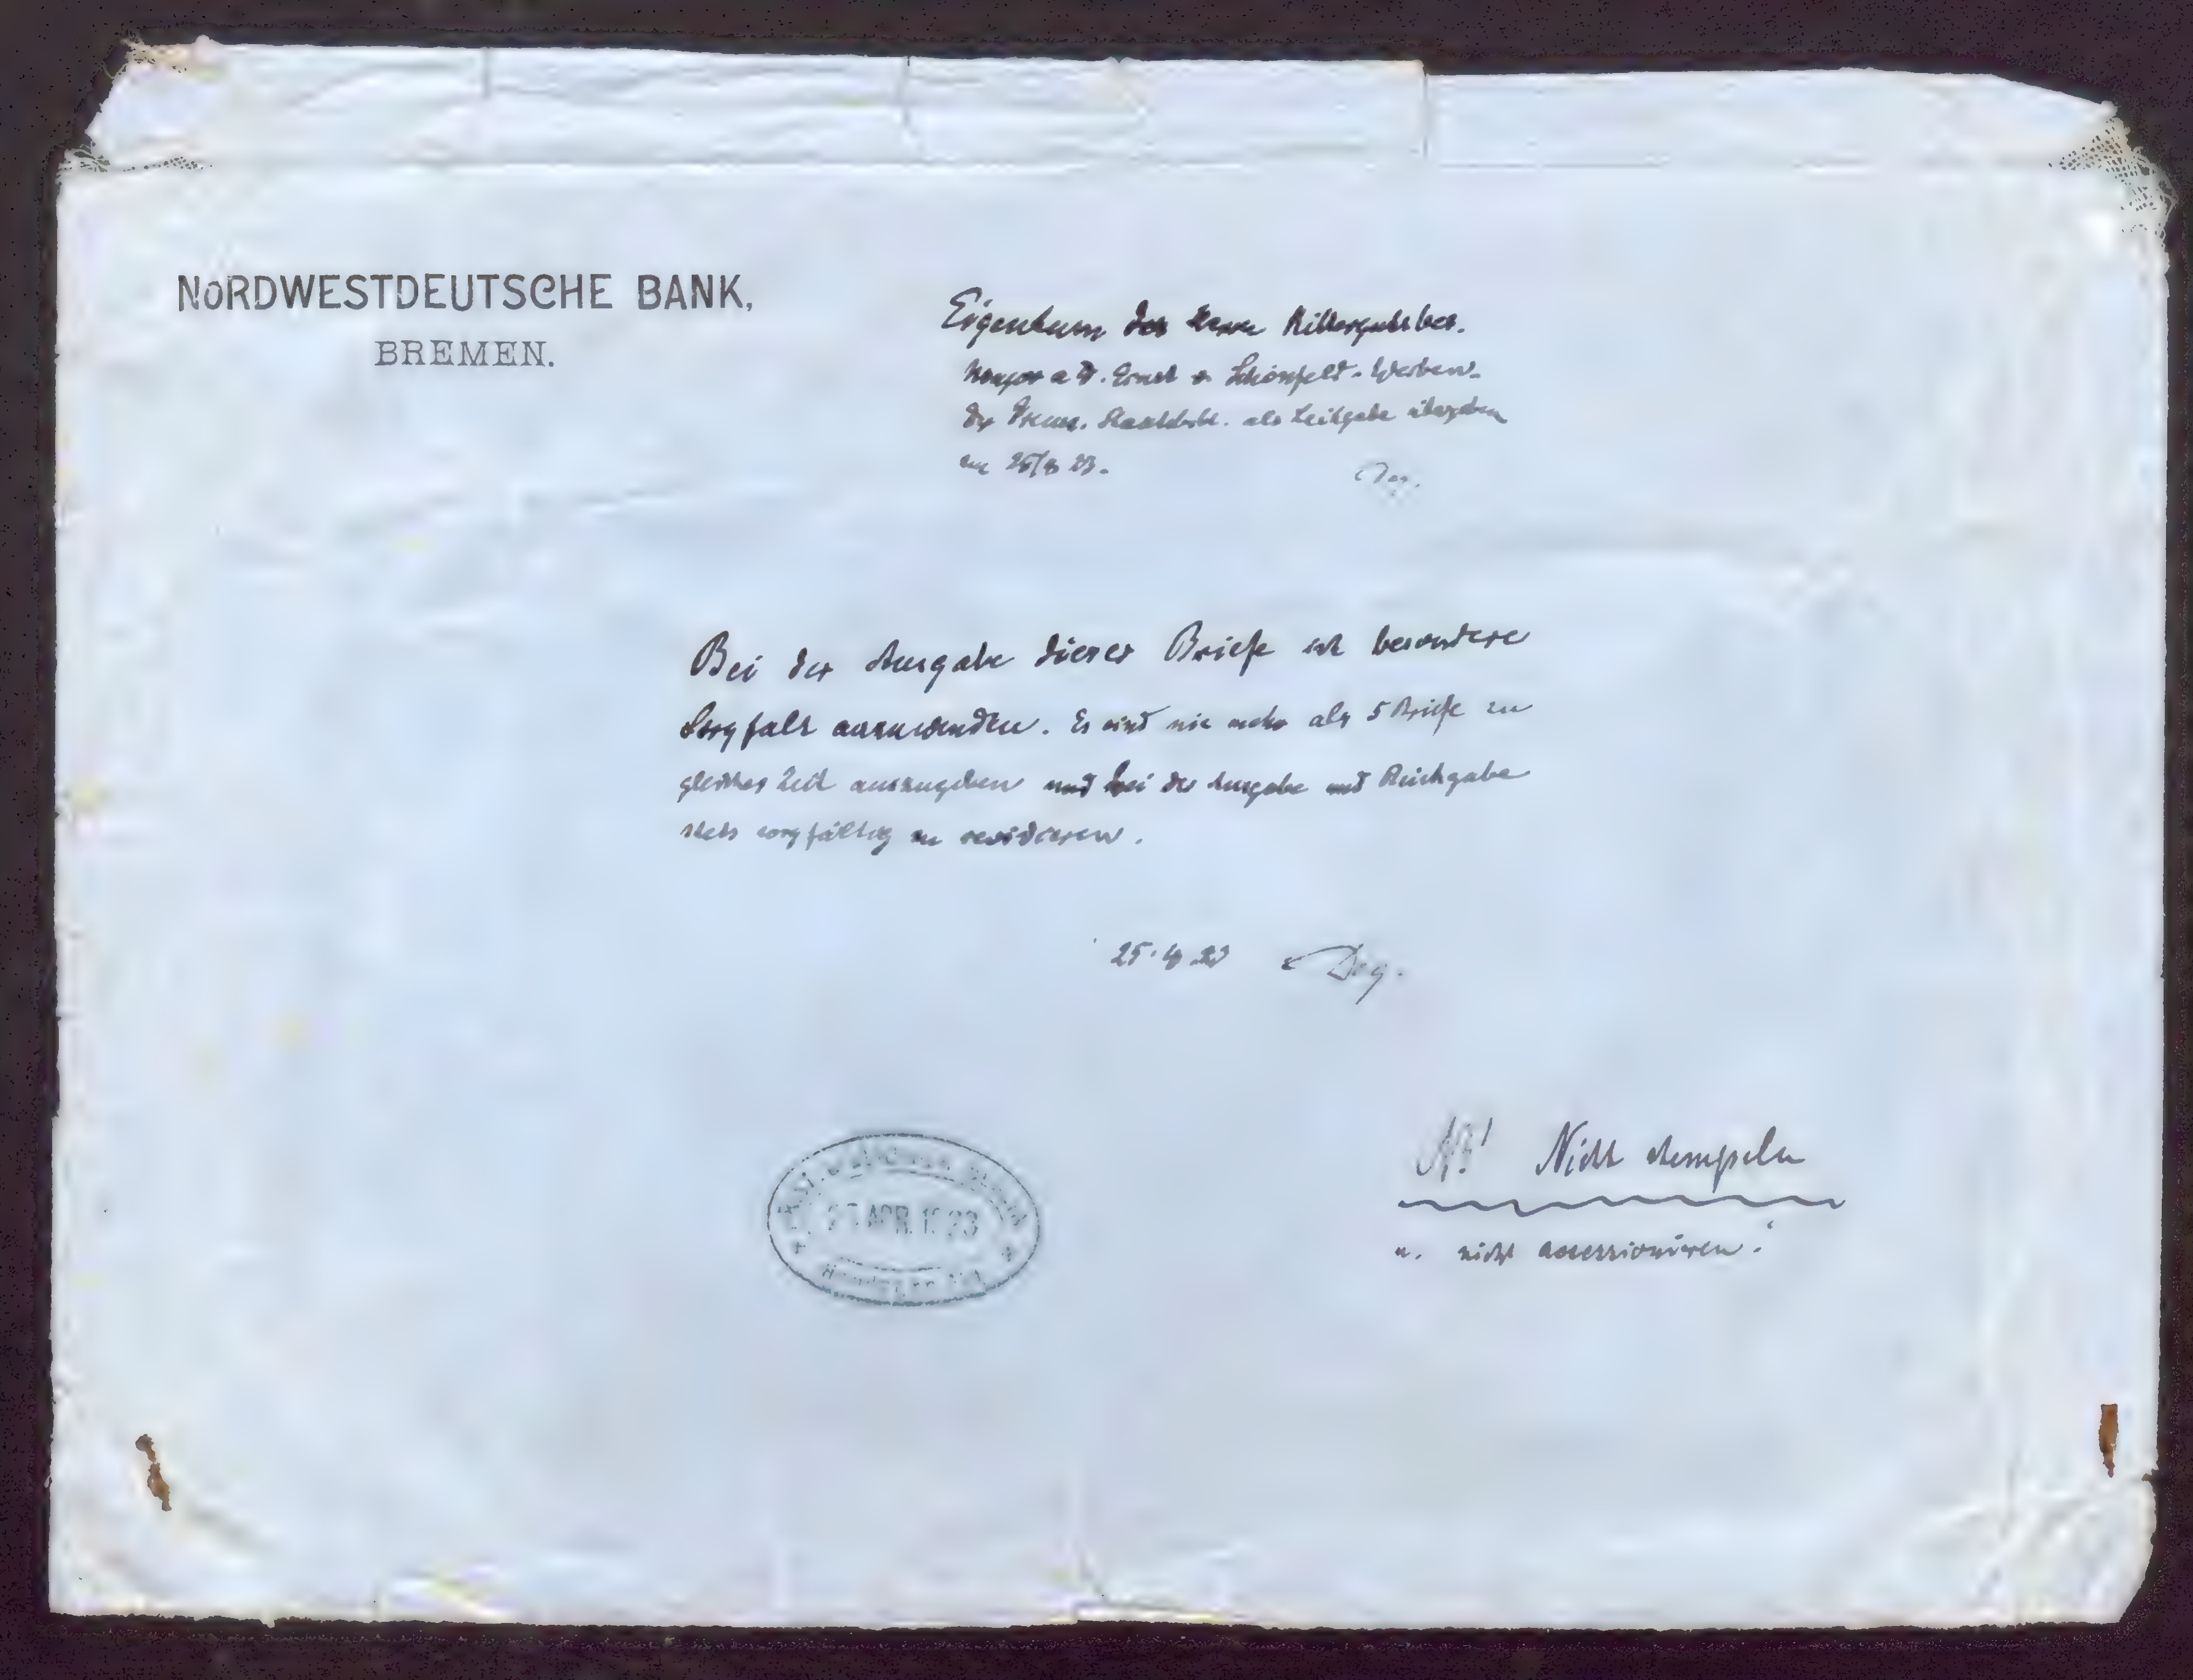 NORDWESTDEUTSCHE BANK,
BREMEN.
Eigentum des Herrn Rittergutsbes.
Major a D. Ernst v. Schönfeldt-Werben.
der Preuss. Staatsbibl. als Leihgabe übergeben
am 25/4 23.
Deg.
Bei der Ausgabe dieser Briefe ist besondere
Sorgfalt anzuwenden. Es sind nie mehr als 5 Briefe zu
gleicher Zeit auszugeben und bei der Ausgabe und Rückgabe
stets sorgfältig zu revidieren.
25.4.23 Deg.
APR. 1923
NB! Nicht stempeln
u. nicht accessionieren!